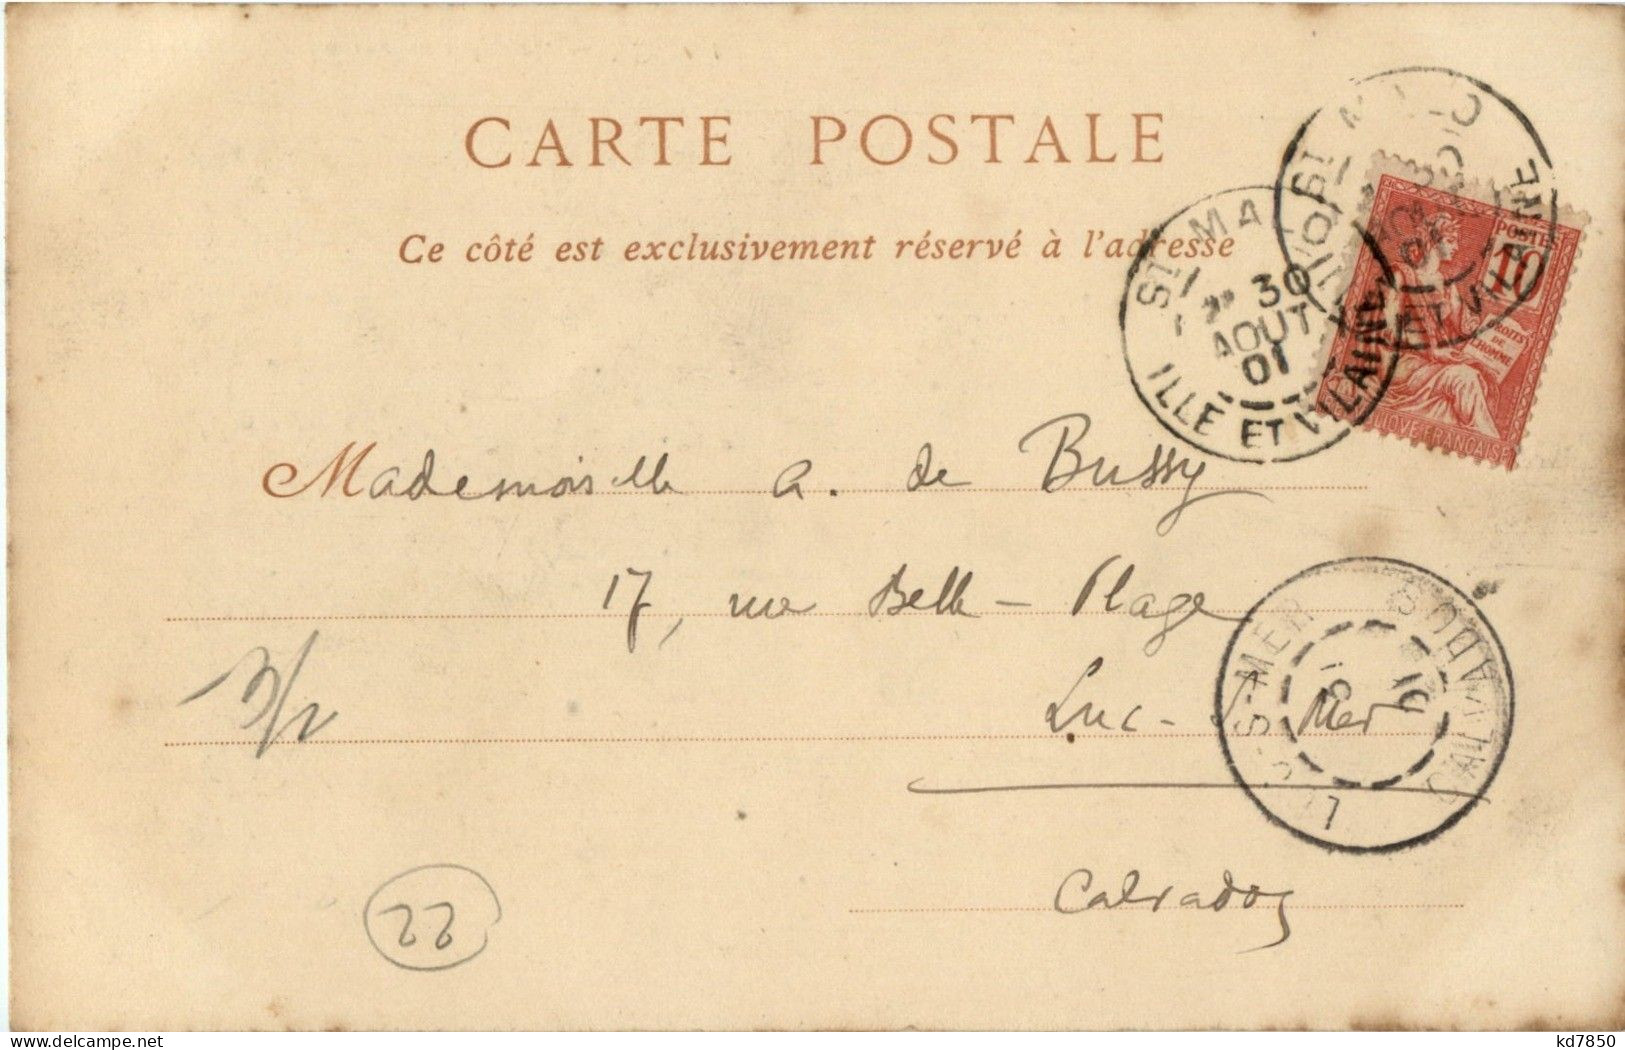 CARTE POSTALE
Ce côté est exclusivement réservé à l'adresse
ST MALO
30
AOUT
01
ILLE ET VILAINE
ST MALO
30
AOUT
01
ILLE ET VILAINE
POSTES
10
DROITS
DE
L'HOMME
FRANÇAISE
Mademoiselle A. de Bussy
17, rue Belle-Plage
Luc-S-Mer
Calvados
LUC-S-MER
01
CALVADOS
3/2
22
delcampe.net
kd7850